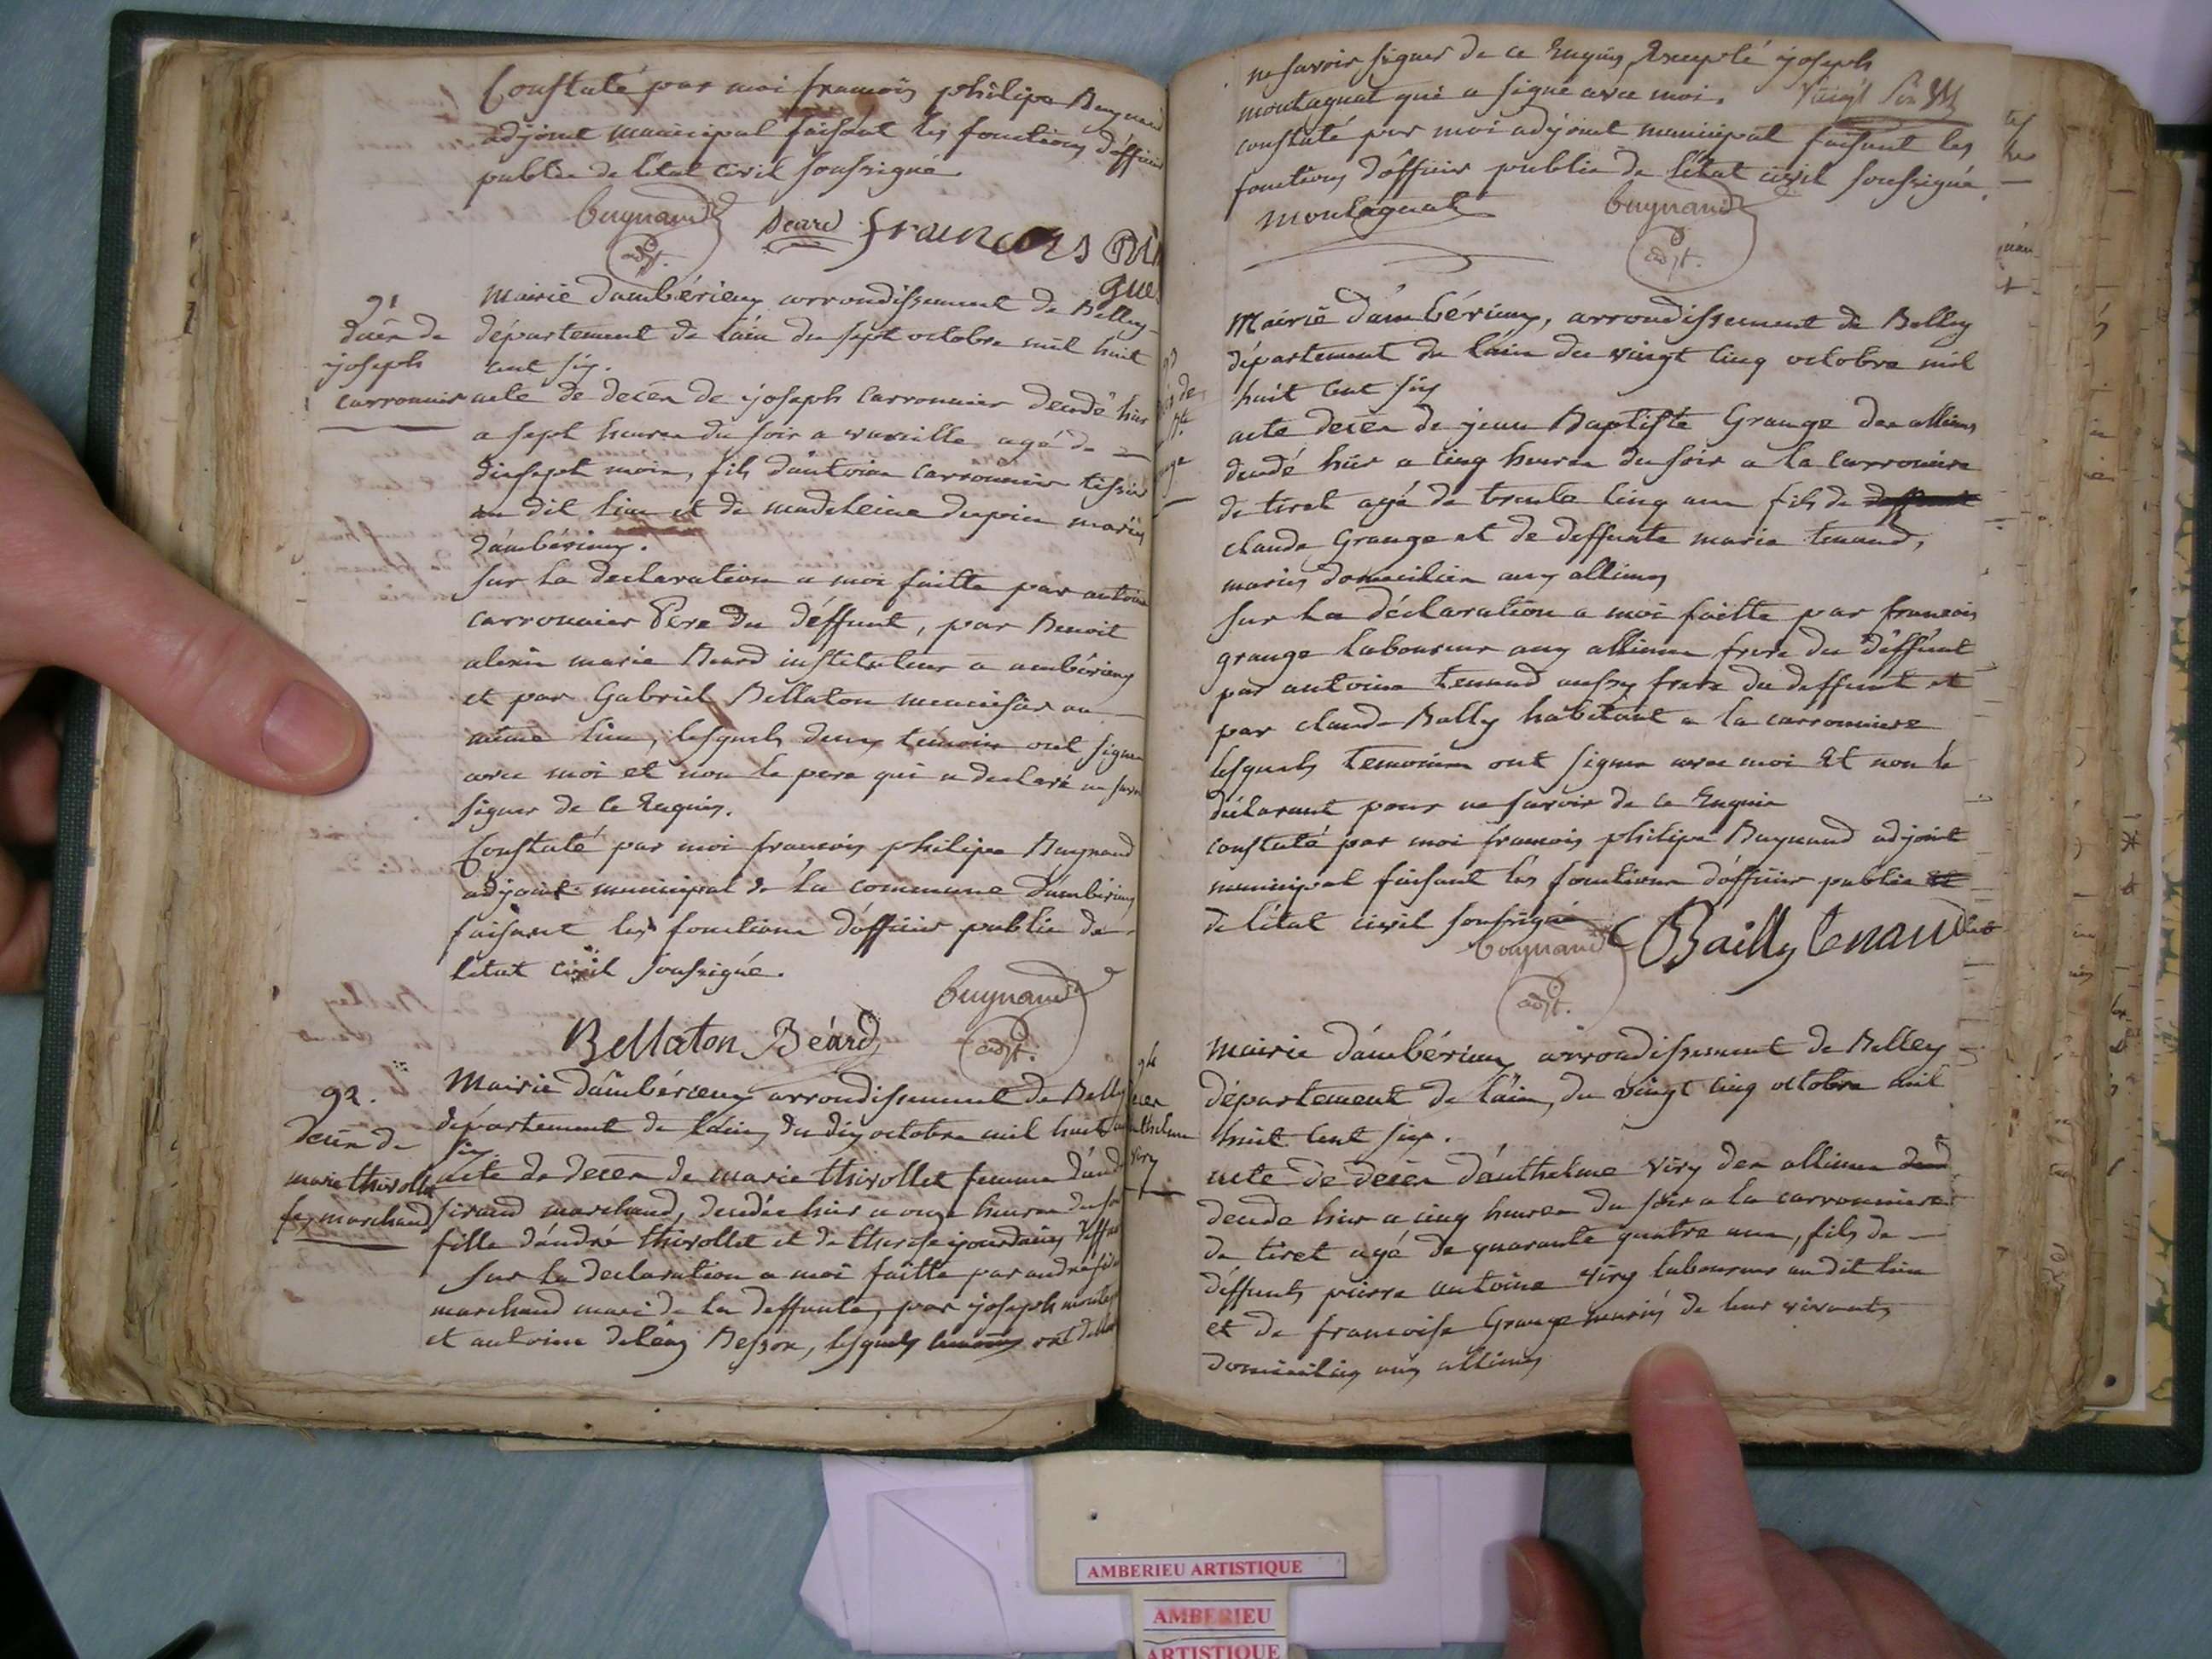 Constaté par moi francois philipe Buynand
adjoint municipal faisant les fonctions d'officier
public de l'état civil soussigné.
buynand
adjt.
Béard francois
91
décès de
joseph
carronnier
Mairie d'ambérieux arrondissement de Belley
département de l'ain du sept octobre mil huit
cent six.
acte de décès de joseph carronnier décédé hier
a sept heures du soir a vareille agé de
dixsept mois, fils d'antoine carronnier tissier
au dit lieu et de madeleine dupin mariés
d'ambérieux.
sur la declaration a moi faitte par antoine
carronnier Pere du déffunt, par Benoit
alexis marie Beard instituteur a ambérieux
et par Gabriel Bellaton menuisier au
même lieu, lesquels deux témoins ont signé
avec moi et non le pere qui a declaré ne savoir
signer de ce Enquis.
Constaté par moi francois philipe Buynand
adjoint municipal de la commune d'ambérieux
faisant les fonctions d'officier public de
l'état civil soussigné.
buynand
adjt.
Bellaton Béard
92.
décès de
marie thivollet
fe marchand
Mairie d'ambérieux arrondissement de Belley
département de l'ain, du dix octobre mil huit cent
six.
acte de décès de marie thivollet femme d'andré
sirand marchand, décédée hier a onze heures du soir
fille d'andré thivollet et de therese jourdain deffunts
Sur la declaration a moi faitte par andré
marchand mari de la deffunte, par joseph
et antoine Besson, lesquels témoins ont
ne savoir signer de ce Enquis, Excepté joseph
montagnat qui a signé avec moi.
constaté par moi adjoint municipal faisant les
fonctions d'officier public de l'état civil soussigné
montagnat
buynand
adjt.
Mairie d'ambérieux, arrondissement de Belley
département de l'ain du vingt cinq octobre mil
huit cent six
acte décès de jean Baptiste Grange des allimes
décédé hier a cinq heures du soir a la carroniere
de tiret agé de trente cinq ans fils de
claude Grange et de deffunte marie tenand,
mariés domiciliés aux allimes
sur la déclaration a moi faitte par francois
grange laboureur aux allimes frere du déffunt
par antoine tenand aussy frere du deffunt et
par claude Bally habitant a la carronniere
lesquels temoins ont signés avec moi Et non le
déclarant pour ne savoir de ce Enquis
constaté par moi francois philipe Buynand adjoint
municipal faisant les fonctions d'officier public
de l'état civil soussigné
buynand
adjt.
Bailly tenand
94
Viry
mairie d'ambérieux arrondissement de Belley
département de l'ain, du vingt cinq octobre mil
huit cent six.
acte de décès d'anthelme Viry des allimes
décédé hier a cinq heures du soir a la carronniere
de tiret agé de quarante quatre ans, fils de
déffunts pierre antoine Viry laboureur au dit lieu
et de francoise Grange mariés de leur vivants
domiciliés aux allimes
AMBERIEU ARTISTIQUE
AMBERIEU
ARTISTIQUE